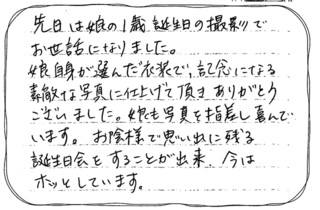 先日は娘の1歳誕生日の撮影で
お世話になりました。
娘自身が選んだ衣装で、記念になる
素敵な写真に仕上げて頂きありがとう
ございました。娘も写真を指差し喜んで
います。お陰様で思い出に残る
誕生日会をすることが出来、今は
ホッとしています。